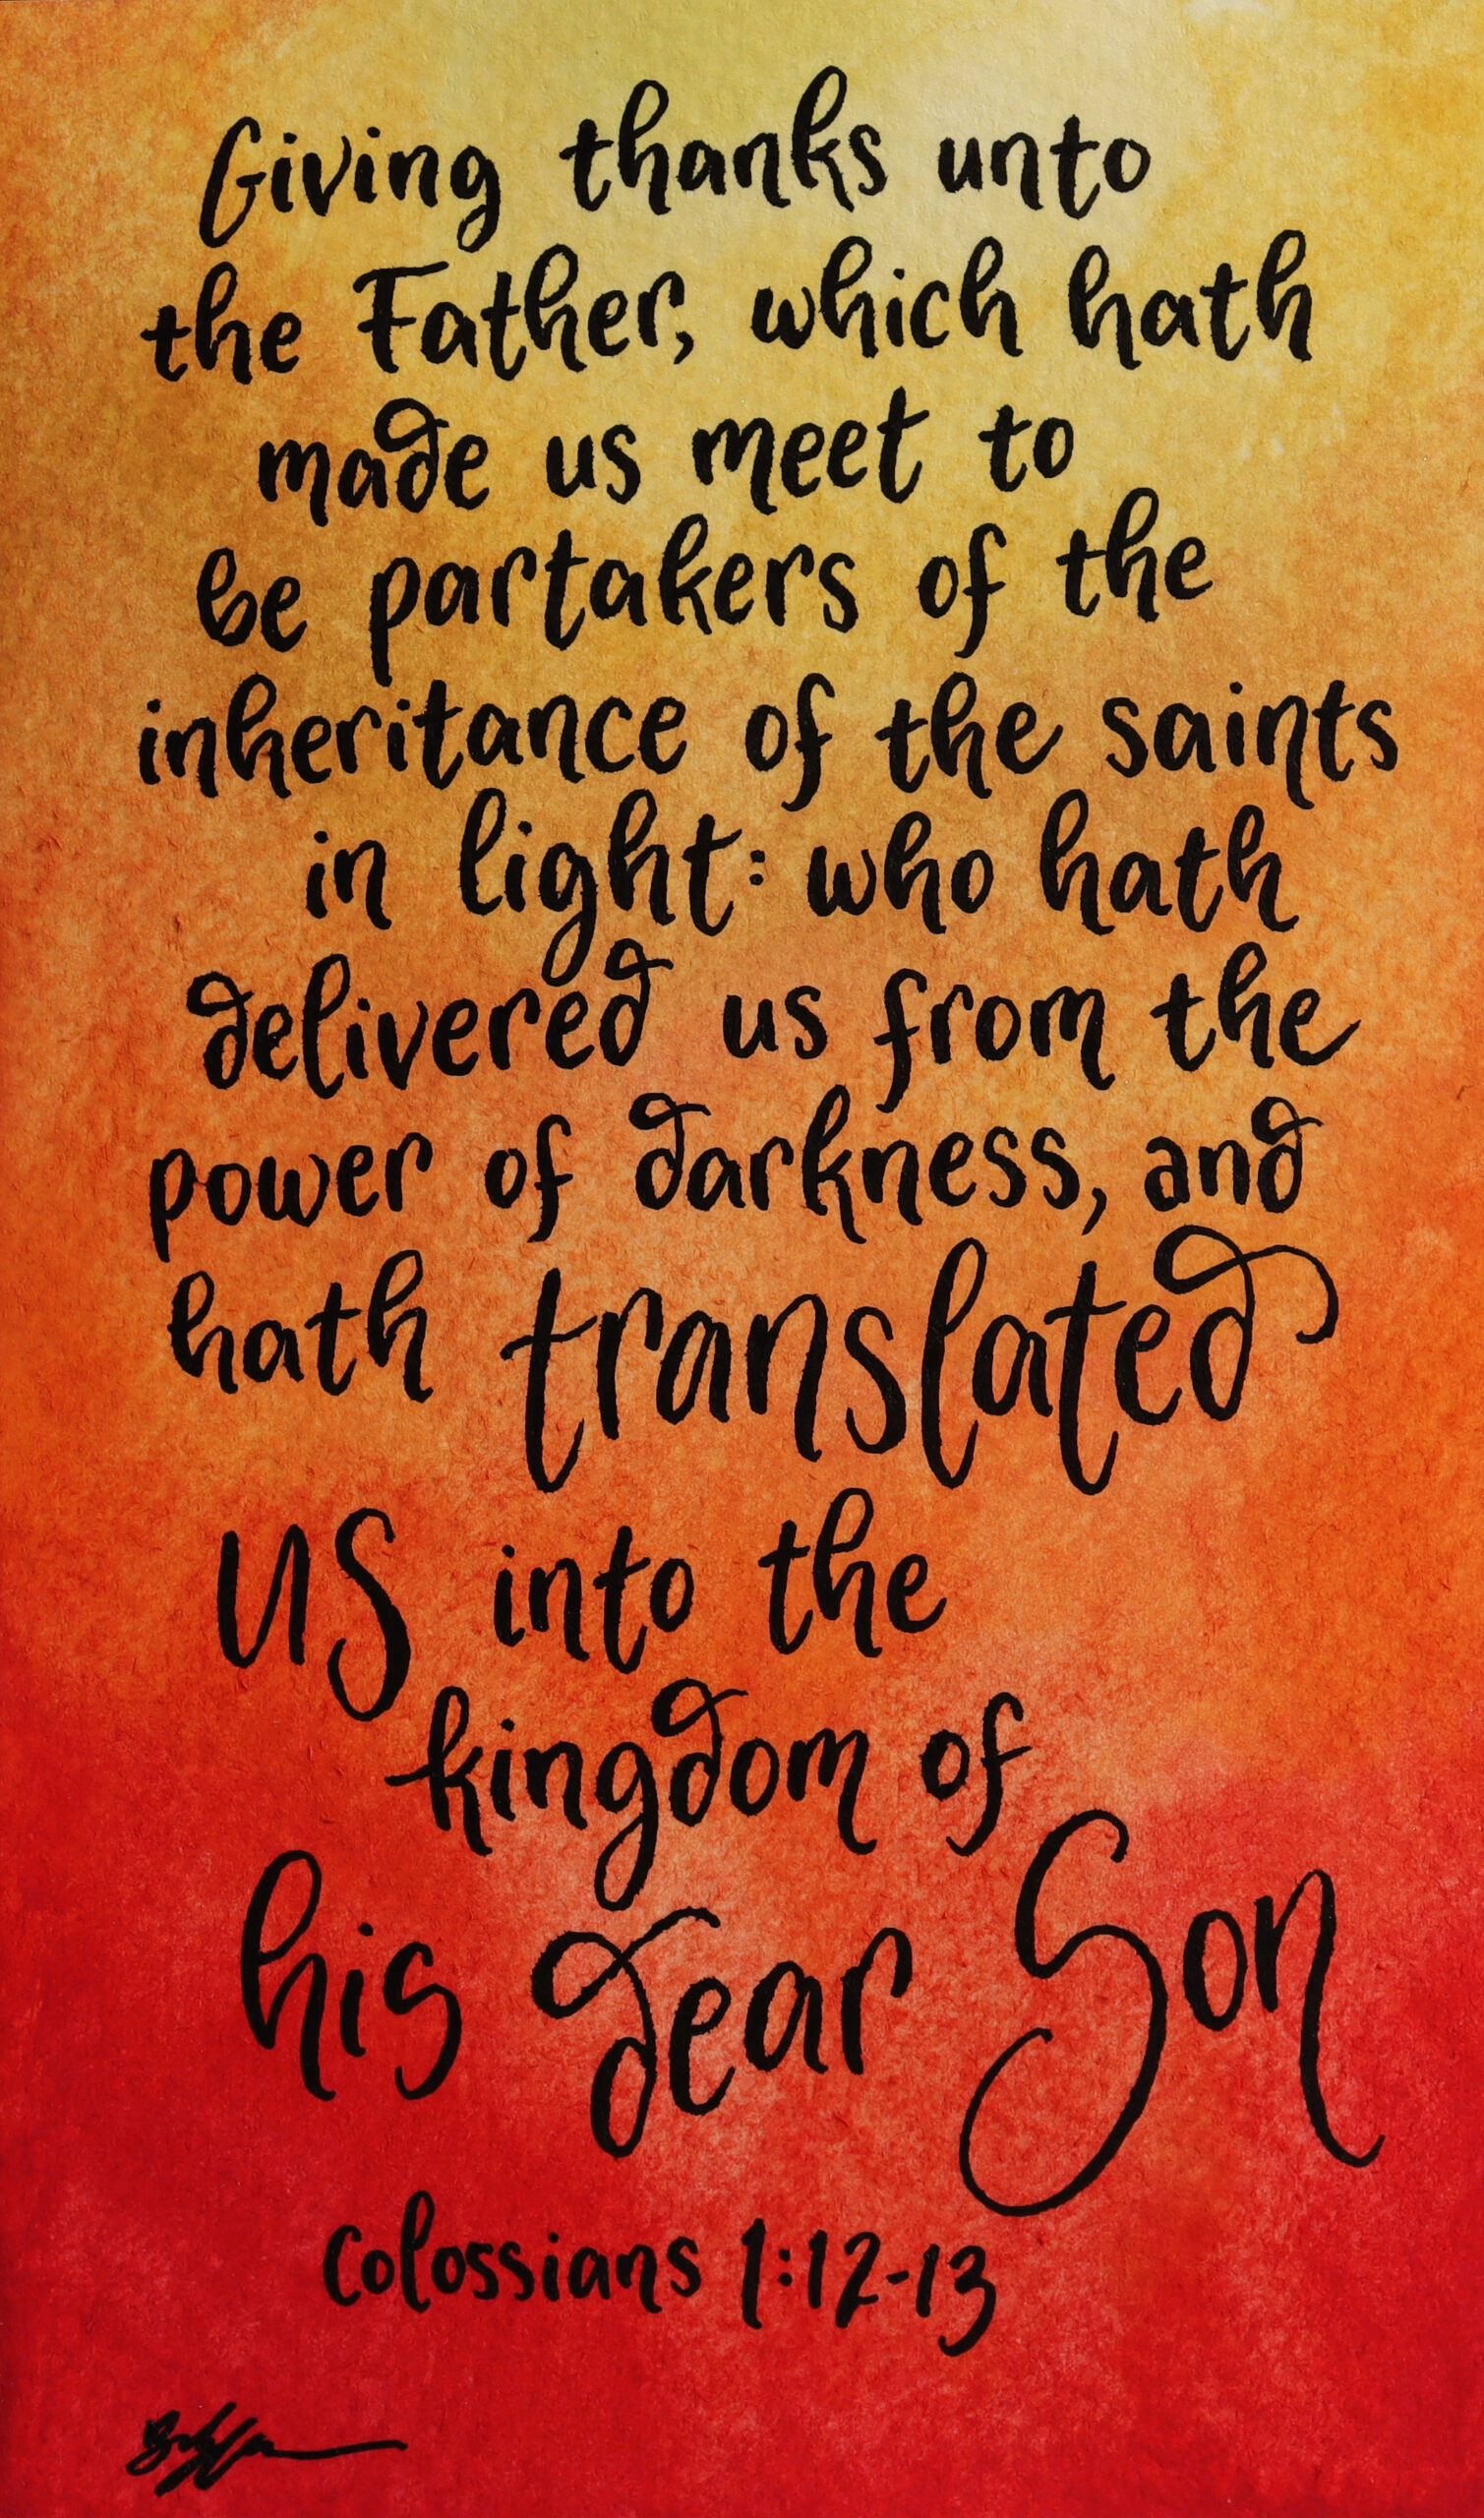 Giving thanks unto
the Father, which hath
made us meet to
be partakers of the
inheritance of the saints
in light: who hath
delivered us from the
power of darkness, and
hath translated
us into the
kingdom of
his dear Son
Colossians 1:12-13